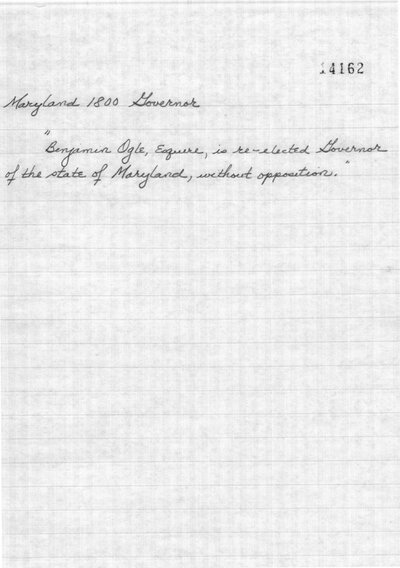 14162
Maryland 1800 Governor
"Benjamin Ogle, Esquire, is re-elected Governor
of the state of Maryland, without opposition."